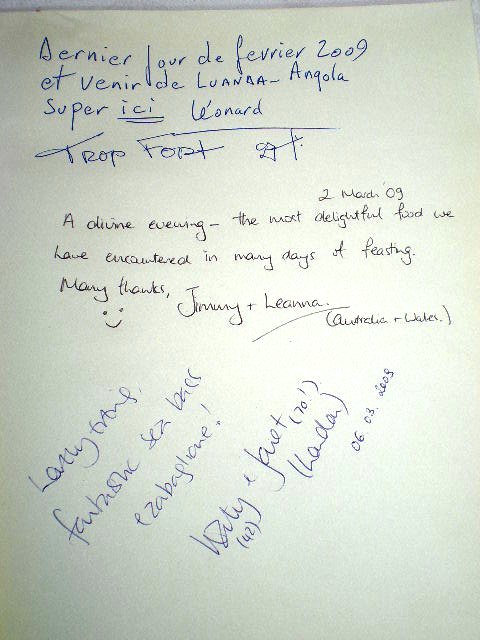 Dernier Jour de fevrier 2009
et venir de LUANDA - Angola
Super ici Léonard
TROP FORT
2 March '09
A divine evening - the most delightful food we
have encountered in many days of feasting.
Many thanks,
Jimmy + Leanna.
(Australia + Wales.)
fantastic sea bass
e zabaglione!
Katy e Janet (70!)
(42) (London)
06.03.2009